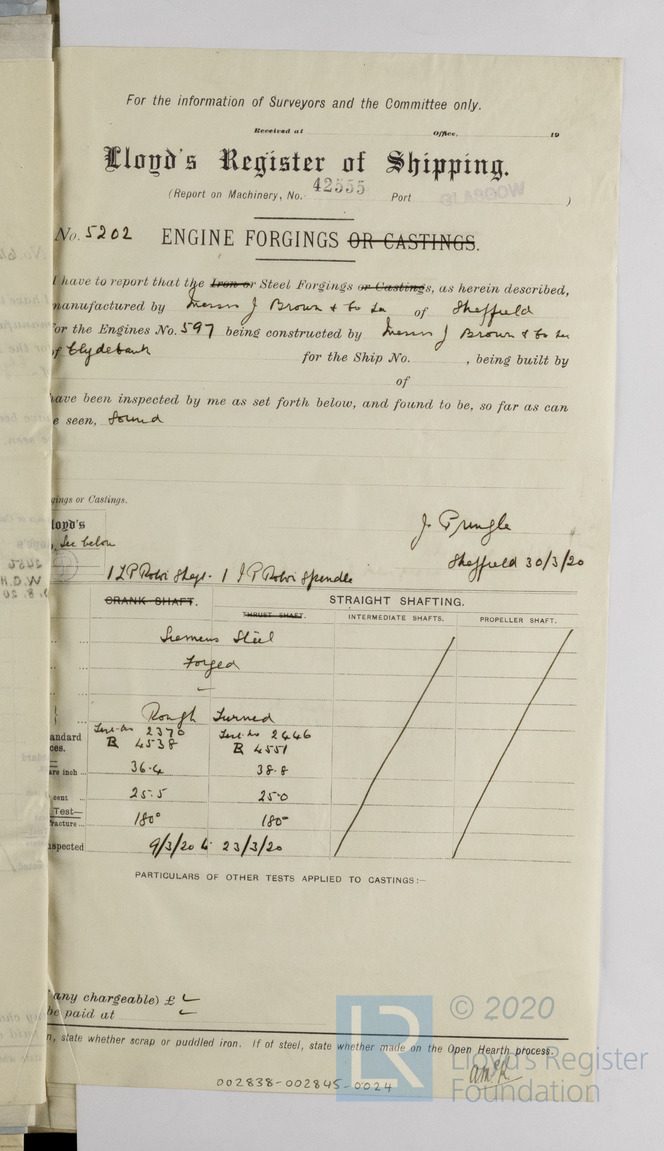 For the information of Surveyors and the Committee only.
Received at Office, 19
Lloyd's Register of Shipping.
(Report on Machinery, No. 42555 Port GLASGOW )
No. 5202 ENGINE FORGINGS OR CASTINGS.
I have to report that the Iron or Steel Forgings or Castings, as herein described,
manufactured by Messrs J Brown & Co Ld of Sheffield
for the Engines No. 597 being constructed by Messrs J Brown & Co Ld
of Clydebank for the Ship No. , being built by
of
have been inspected by me as set forth below, and found to be, so far as can
e seen, Sound
gings or Castings.
loyd's
See below
J. Pringle
Sheffield 30/3/20
1 L P Rotor Shaft. 1 I P Rotor Spindle
CRANK SHAFT. STRAIGHT SHAFTING.
THRUST SHAFT. INTERMEDIATE SHAFTS. PROPELLER SHAFT.
Siemens Steel
Forged
Rough Turned
andard Test No 2370 Test No 2446
ces. B 4538 B 4551
are inch ... 36.4 38.8
cent ... 25.5 25.0
Test—
racture ... 180° 180°
nspected 9/3/20 to 23/3/20
PARTICULARS OF OTHER TESTS APPLIED TO CASTINGS:—
any chargeable) £
be paid at
n, state whether scrap or puddled iron. If of steel, state whether made on the Open Hearth process.
002838-002845-0024
LR © 2020
Lloyd's Register
Foundation